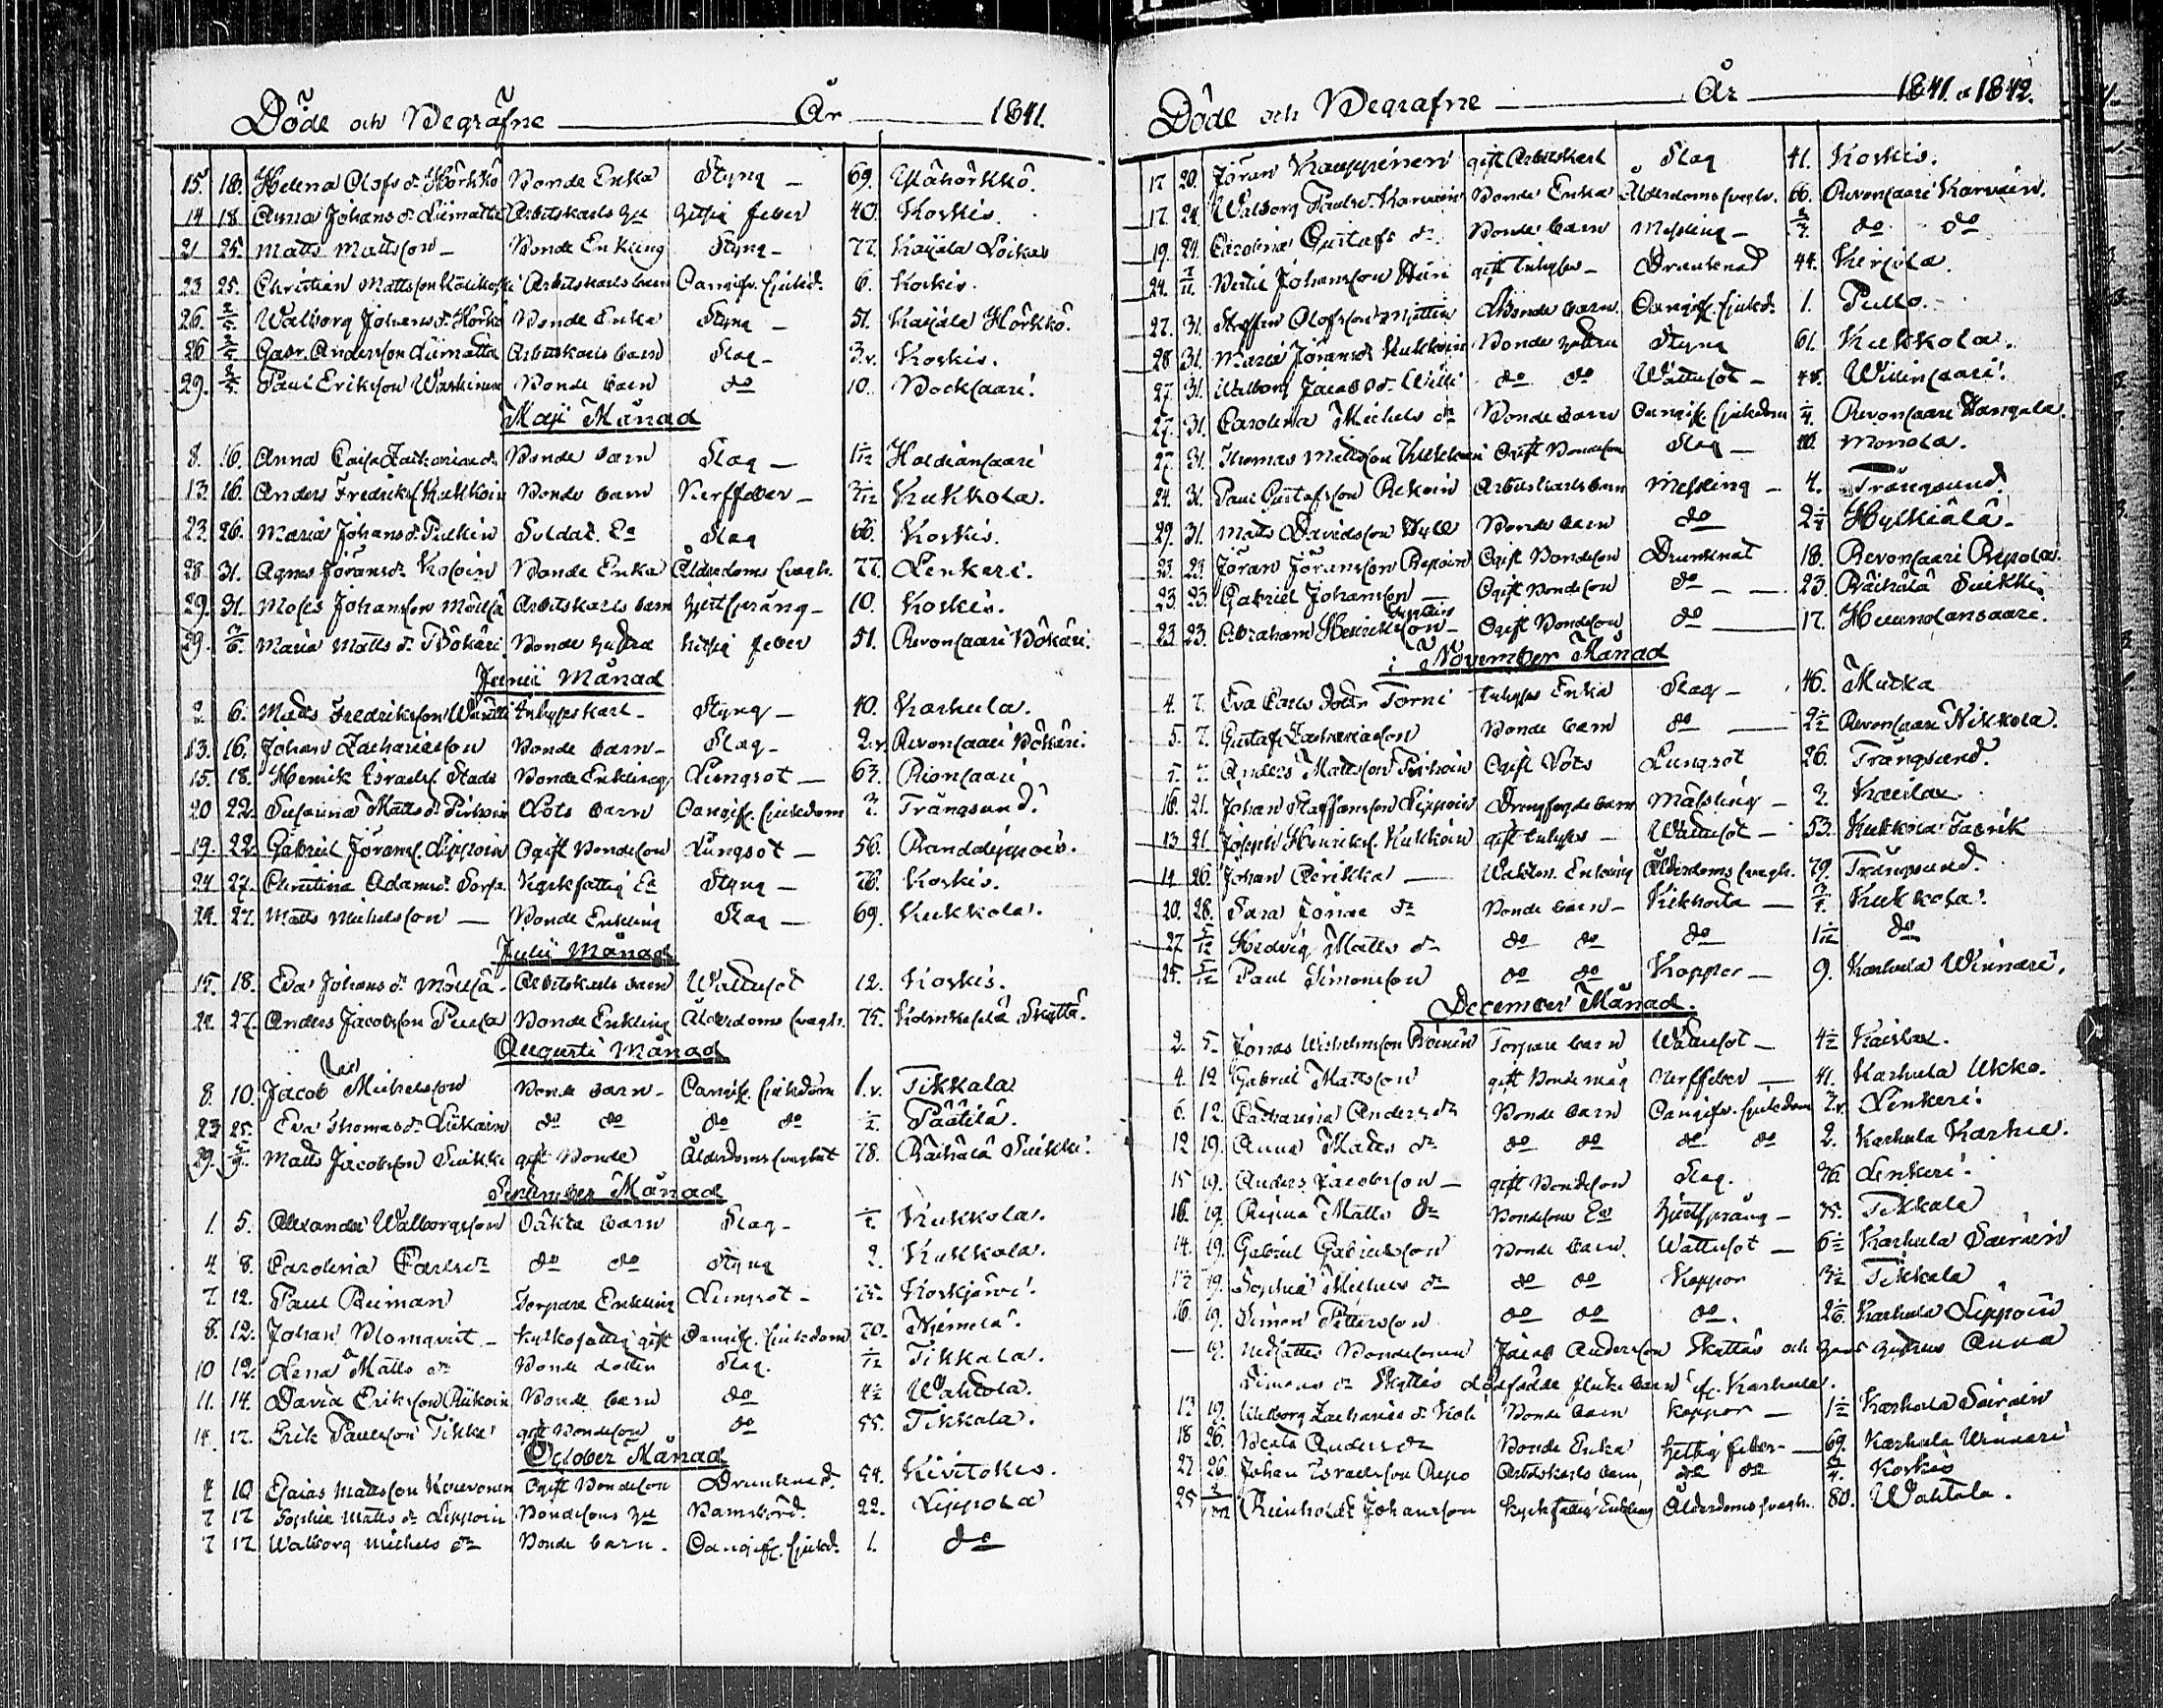 Döde och Begrafne År 1841.
15. 18. Helena Olofs dr Hörkkö Bonde Enka Styng 69. Ylähörkkö.
14 18. Anna Johans dr Liimatta Arbetskarls hu hitsig feber 40. Koskis.
21 25. Matts Mattsson Bonde Enkling Styng 77. Kaijala Loikas
23 25. Christian Mattsson Arbetskarls barn Oangifv. sjukd. 6. Koskis.
26. 2/5. Walborg Johans dr Hörkö Bonde Enka Styng 51. Kaijala Hörkkö.
26 2/5 Gabr. Andersson Liimatta Arbetskarls barn Slag 3 v. Koskis.
29. 2/5. Paul Eriksson Bonde barn do 10. Bocksaari.
Maji Månad
8. 16. Anna Caisa Zacharias dr Bonde barn Slag 1/12 Haldiansaari
13. 16. Anders Fredriks. Kukkoin Bonde barn Nerffeber /12 Kukkola.
23. 26. Maria Johansd. Pulkin Soldat. Ea Slag 66. Koskis.
28 31. Agnes Jöransdr Kosoin Bonde Enka Ålderdoms svagh. 77. Lenkeri.
29. 31. Moses Johansson Mölsä Arbetskarls barn hjertsprång 10. Koskis.
29. /6. Maria Matts dr Pökäri Bonde hustru hitsig feber 51. Revonsaari Pökäri.
Junii Månad
2 6. Matts Fredriksson Inhyses karl Styng 40. Karhula.
13. 16. Johan Zachariasson Bonde barn Slag 2. v. Revonsaari Pökäri.
15. 18. Henrik Israels. Stads Bonde Enkling Lungsot 63. Rionsaari
20 22. Susanna Matts dr Pirhoin Lots barn Oangifv. sjukdom Trångsund.
19. 22. Gabriel Jörans. Lippoin Ogift Bondeson Lungsot 56. Randdippois.
24 27. Christina Adamsdr Sorsa. Kyrkfattig Ea Styng 78. Koskis.
24. 27. Matts Michelsson Bonde Enkling Slag 69. Kukkola.
Julii Månad
15. 18. Eva Johans dr Mölsä Arbetskarls barn Wattusot 12. Koskis.
24. 27. Anders Jacobsson Pulsa Bonde Enkling Ålderdoms svagh. 75. Skyttä.
Augusti Månad
8. 10. Jacob Michelsson Bonde barn Oangifv. sjukdom 1. v. Tikkala
23 25. Eva Thomasdr Liikain do do do do Päätilä.
29. 5/9. Matts Jacobsson Suikki gift Bonde Ålderdoms svaghet 78. Räihälä Suikki.
September Månad
1. 5. Alexander Walborgsson Oäkta barn Slag Kukkola.
4 8. Carolina Carlsdr do do Styng 2. Kukkola.
7. 12. Paul Riiman Torpare Enkling Lungsot 75. Koskjärvi.
8. 12. Johan Blomqvist Kyrkofattig gift Oangifv. sjukdom 70. Niemelä.
10 12. Lena Matts dr Bonde dotter Slag. /12 Tikkala.
11. 14. David Eriksson Rikoin Bonde barn do 4½ Wahtola.
14. 17. Erik Paulsson Tikka gift Bondeson do 55. Tikkala.
October Månad
10 Esaias Mattsson Kouvonen Ogift Bondeson Drunknad. 54. Kivitokis.
7 17 Sophia Matts dr Lippoin Bondesons hu Barnsbörd. 22. Lippola
7 17 Walborg Michels dr Bonde barn. Oangifv. sjukd. 1. do
Döde och Begrafne År 1841. o 1842.
17 20. Jöran Kauppinen gift Arbetskarl Slag 41. Koskis.
17. 24. Walborg Paulsd. Karvain Bonde Enka Ålderdoms svagh. 66. Revonsaari Karvain.
19. 24. Carolina Gustafs dr Bonde barn Messling do do
24. 7/11. Bertil Johansson gift Inhyses Drunknad 44. Kirjola.
27. 31. Staffan Olofsson Bonde barn Oangifv. sjukd. 1. Pullo.
28 31. Maria Jöransdr Kukkoin Bonde hustru Styng 61. Kukkola.
27. 31. Walborg Jacobs dr Willi do do Wattusot 48. Willinsaari.
27. 31. Carolina Michels dr Bonde barn Oangifv. sjukdom ¼. Revonsaari Hangala.
27. 31. Thomas Mattsson Ogift Bondeson Slag Monola.
24. 31. Paul Gustafsson Rekoin Arbetskarls barn Messling 4. Trångsund
29. 31. Matts Davidsson Hyll Bonde barn do 2¼ Hylkiälä.
23. 23. Jöran Jöransson Repoin Ogift Bondeson Drunknat 18. Revonsaari Repola.
23. 23. Gabriel Johansson Ogift Bondeson do 23. Räihälä Suikki.
23 23. Abraham Henriksson Ogift Bondeson do 17. Heimolansaari.
i November Månad
4. 7. Eva Carls dotter Torni Inhyses Enka Slag 46. Mutka
5. 7. Gustaf Zachariasson Bonde barn do 2½ Revonsaari Nikkola.
7. Anders Mattsson Pirhoin Ogift Lots Lungsot 26. Trångsund.
16. 21. Johan Staffansson Lippoin barn Mässling 2. Kaislax
13 21. Joseph Henriks. Kukkoin gift Inhyses Wattusot 53. Kukkola Fabrik
19. 26. Johan Rerikka Enkling Ålderdoms svagh. 79. Trångsund.
20. 28. Sara Jonae dr Bonde barn Kikhosta Kukkola.
27 5/12 Hedvig Matts dr do do do 1/12 do
25. 5/12 Paul Simonsson do do Koppor 9. Karhula Winnari.
December Månad.
2. 5. Jonas Wilhelmsson Torpare barn Wattusot 4½ Kaislax.
4. 12 Gabriel Mattsson gift Bonde måg Nerffeber 41. Karhula Ukko.
6. 12. Catharina Anders dr Bonde barn Oangifv. sjukdom Lenkeri.
12 19. Anna Matts dr do do do do 2. Karhula Karhu.
15 19. Anders Jacobsson gift Bondeson Slag. 36. Lenkeri.
16. 19. Regina Matts dr Bondesons Ea Hjertsprång 75. Tikkala
14. 19. Gabriel Gabrielsson Bonde barn. Wattusot 6½ Karhula Sairain
19. Sophia Michels dr do do Koppor 3½ Tikkala
16. 19. Simon Pettersson do do do. 2/6. Karhula Lippoin
19. Bondesonen Jacob Andersson Skyttäs och hans hustrus Anna
Simons dr Skyttäs dödfödde flicke barn fr. Karhula.
13 19. Walborg Zacharias dr Koh Bonde barn koppor 1½ Karhula Sairain
18 26. Beata Anders dr Bonde Enka hettsig feber 69. Karhula Winnari
27 26. Johan Israelsson Repo Arbetskarls barn, do do Koskis
25 Reinholdt Johansson kyrkfattig Enkling Ålderdoms svagh. 80. Wahtola.